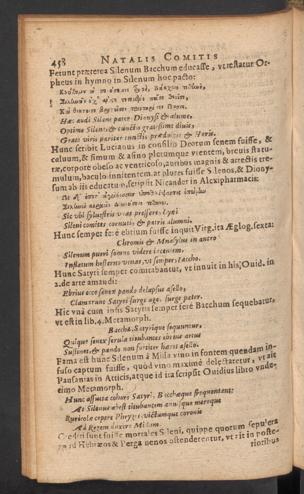 458 NATALIS COMITIS
Ferunt præterea Silenum Bacchum educasse, vt testatur Or-
pheus in hymno in Silenum hoc pacto:
Hæc audi Silene pater Dionysi & alumne,
Optime Silene, & cunctis gratissime diuis,
Gratè viris pariter
Hunc scribit Lucianus in consilio Deorum senem fuisse, &
caluum, & simum & asino plerumque vectum, breuis statu-
ræ, corpore obeso ac ventricoso, auribus magnis & arrectis tre-
mulum, baculo innitentem. at plures fuisse Silenos, & Diony-
sum ab iis educatum, scripsit Nicander in Alexipharmacis:
Sic vbi syluestris vuas pressere Lyæi
Sileni comites cornuti & patris alumni.
Hunc semper ferè ebrium fuisse inquit Virg. ita Æglog. sexta:
Chromis & Mnasylus in antro
Silenum pueri somno videre iacentem,
Inflatum hesterno venas, vt semper, Iaccho.
Hunc Satyri semper comitabantur, vt innuit in his, Ouid. in
2. de arte amandi:
Ebrius ecce senex pando delapsus asello,
Clamarunt Satyri surge age, surge pater.
Hic vnà cum ipsis Satyris semper ferè Bacchum sequebatur,
vt est in lib. 4. Metamorph.
Bacchæ, Satyrique sequuntur,
Quique senex ferula titubantes ebrius artus
Sustinet, & pando non fortiter hæret asello.
Fama est hunc Silenum à Mida vino in fontem quendam in-
fuso captum fuisse, quòd vino maximè delectaretur, vt ait
Pausanias in Atticis, atque id ita scripsit Ouidius libro vnde-
cimo Metamorph.
Hunc assueta cohors Satyri, Bacchæque frequentant:
At Silenus abest titubantem annisque meroque
Ruricolæ cepere Phryges, vinctumque coronis
Ad Regem duxere Midam.
Crediti sunt fuisse mortales Sileni, quippe quorum sepulcra
apud Hebræos & Pergamenos ostenderentur, vt ait in poste-
rioribus